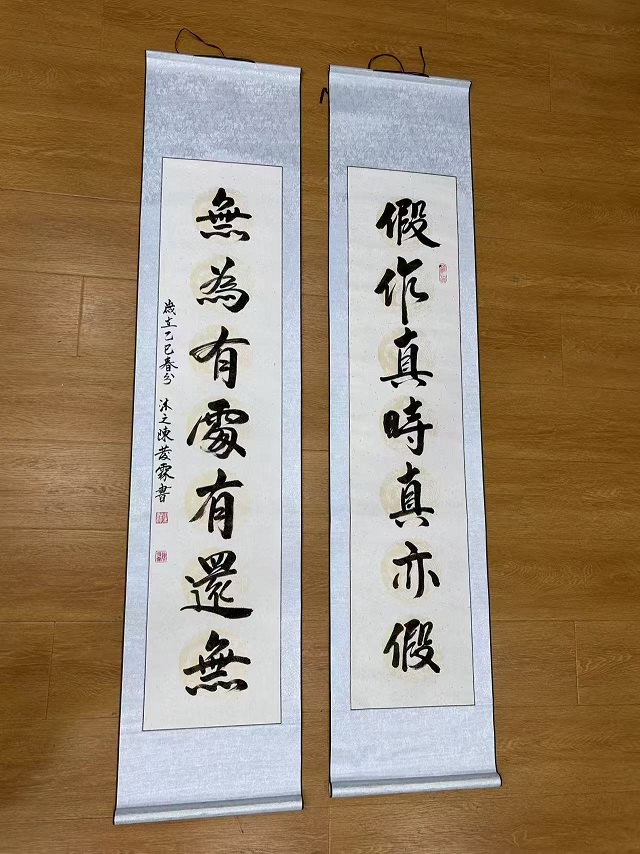 假作真時真亦假
無為有處有還無
歲在乙巳春分 沐之陳發霖書